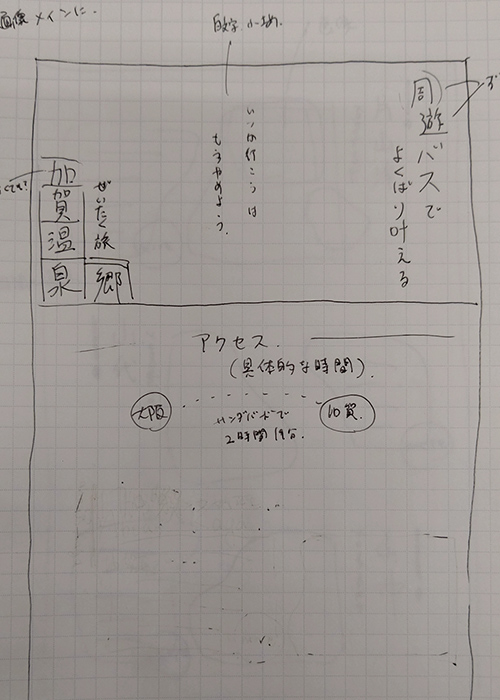 画像メインに.
白文字 小さめ.
周遊バスで
よくばり叶える
いつか行こうは
もうやめよう.
ぜいたく旅
加賀温泉
郷
アクセス.
(具体的な時間).
大阪
加賀.
サンダーバードで
2時間19分.